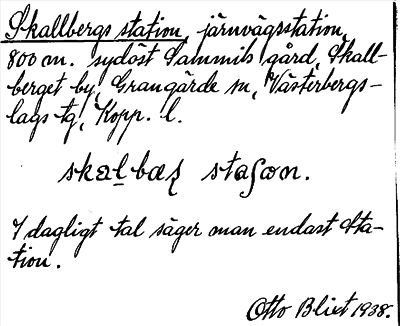 Skallbergs station, järnvägsstation,
800 m. sydöst Sammils gård, Skall-
berget by, Grangärde sn, Västerbergs-
lags tg, Kopp. l.
staʃon.
I dagligt tal säger man endast Sta-
tion.
Otto Blixt 1938.